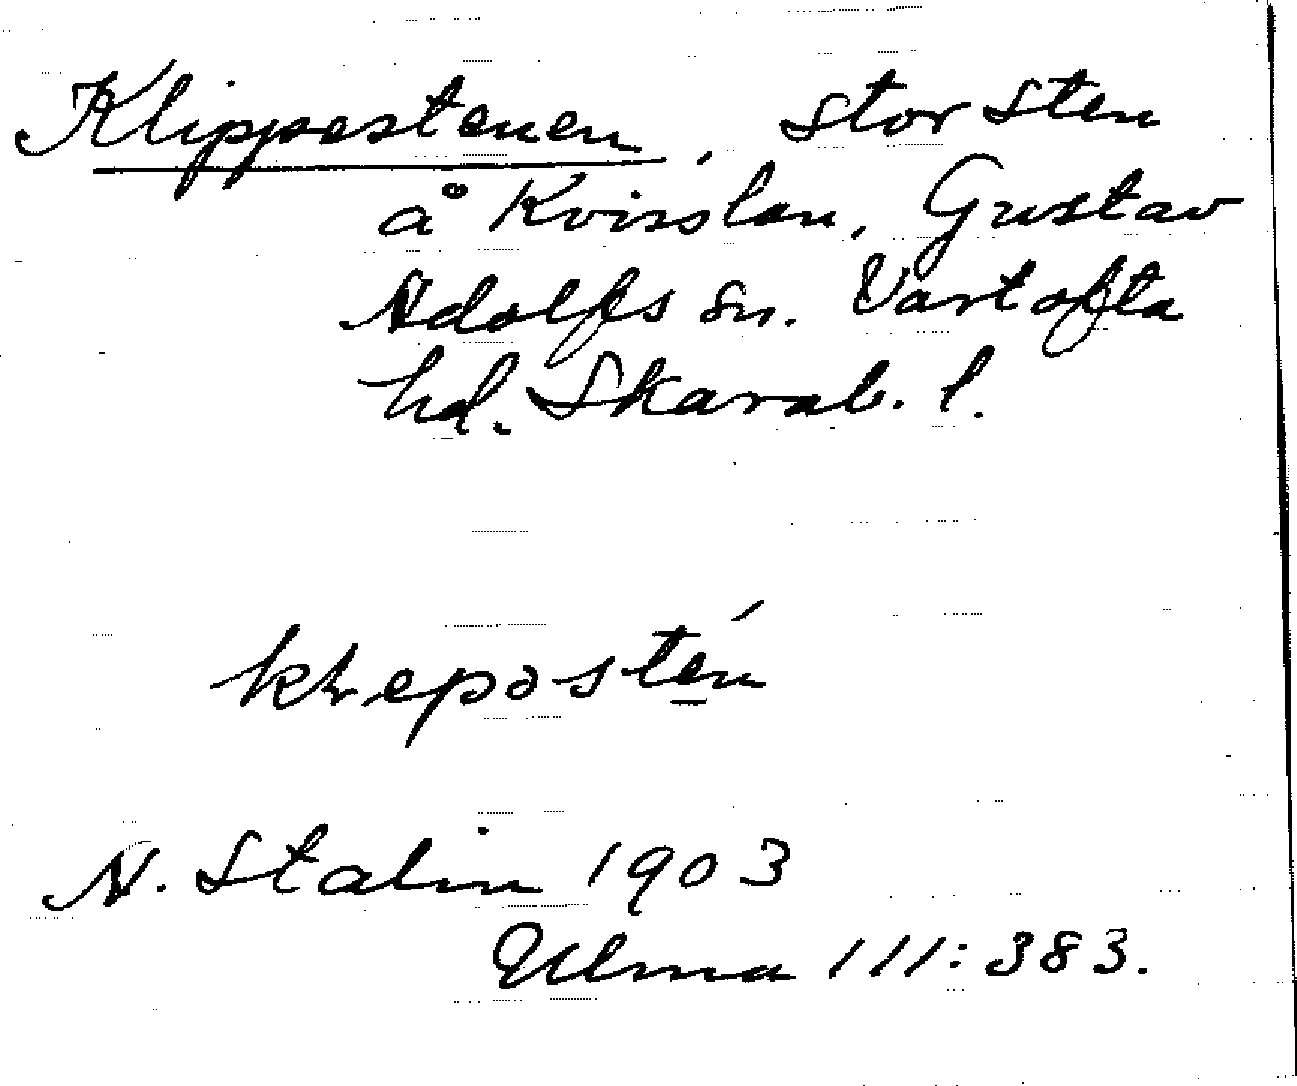 Klippestenen, stor sten
å Kvisslan, Gustav
Adolfs sn. Vartofta
hd. Skarab. l.
N. Stalin 1903
Ulma 111:383.